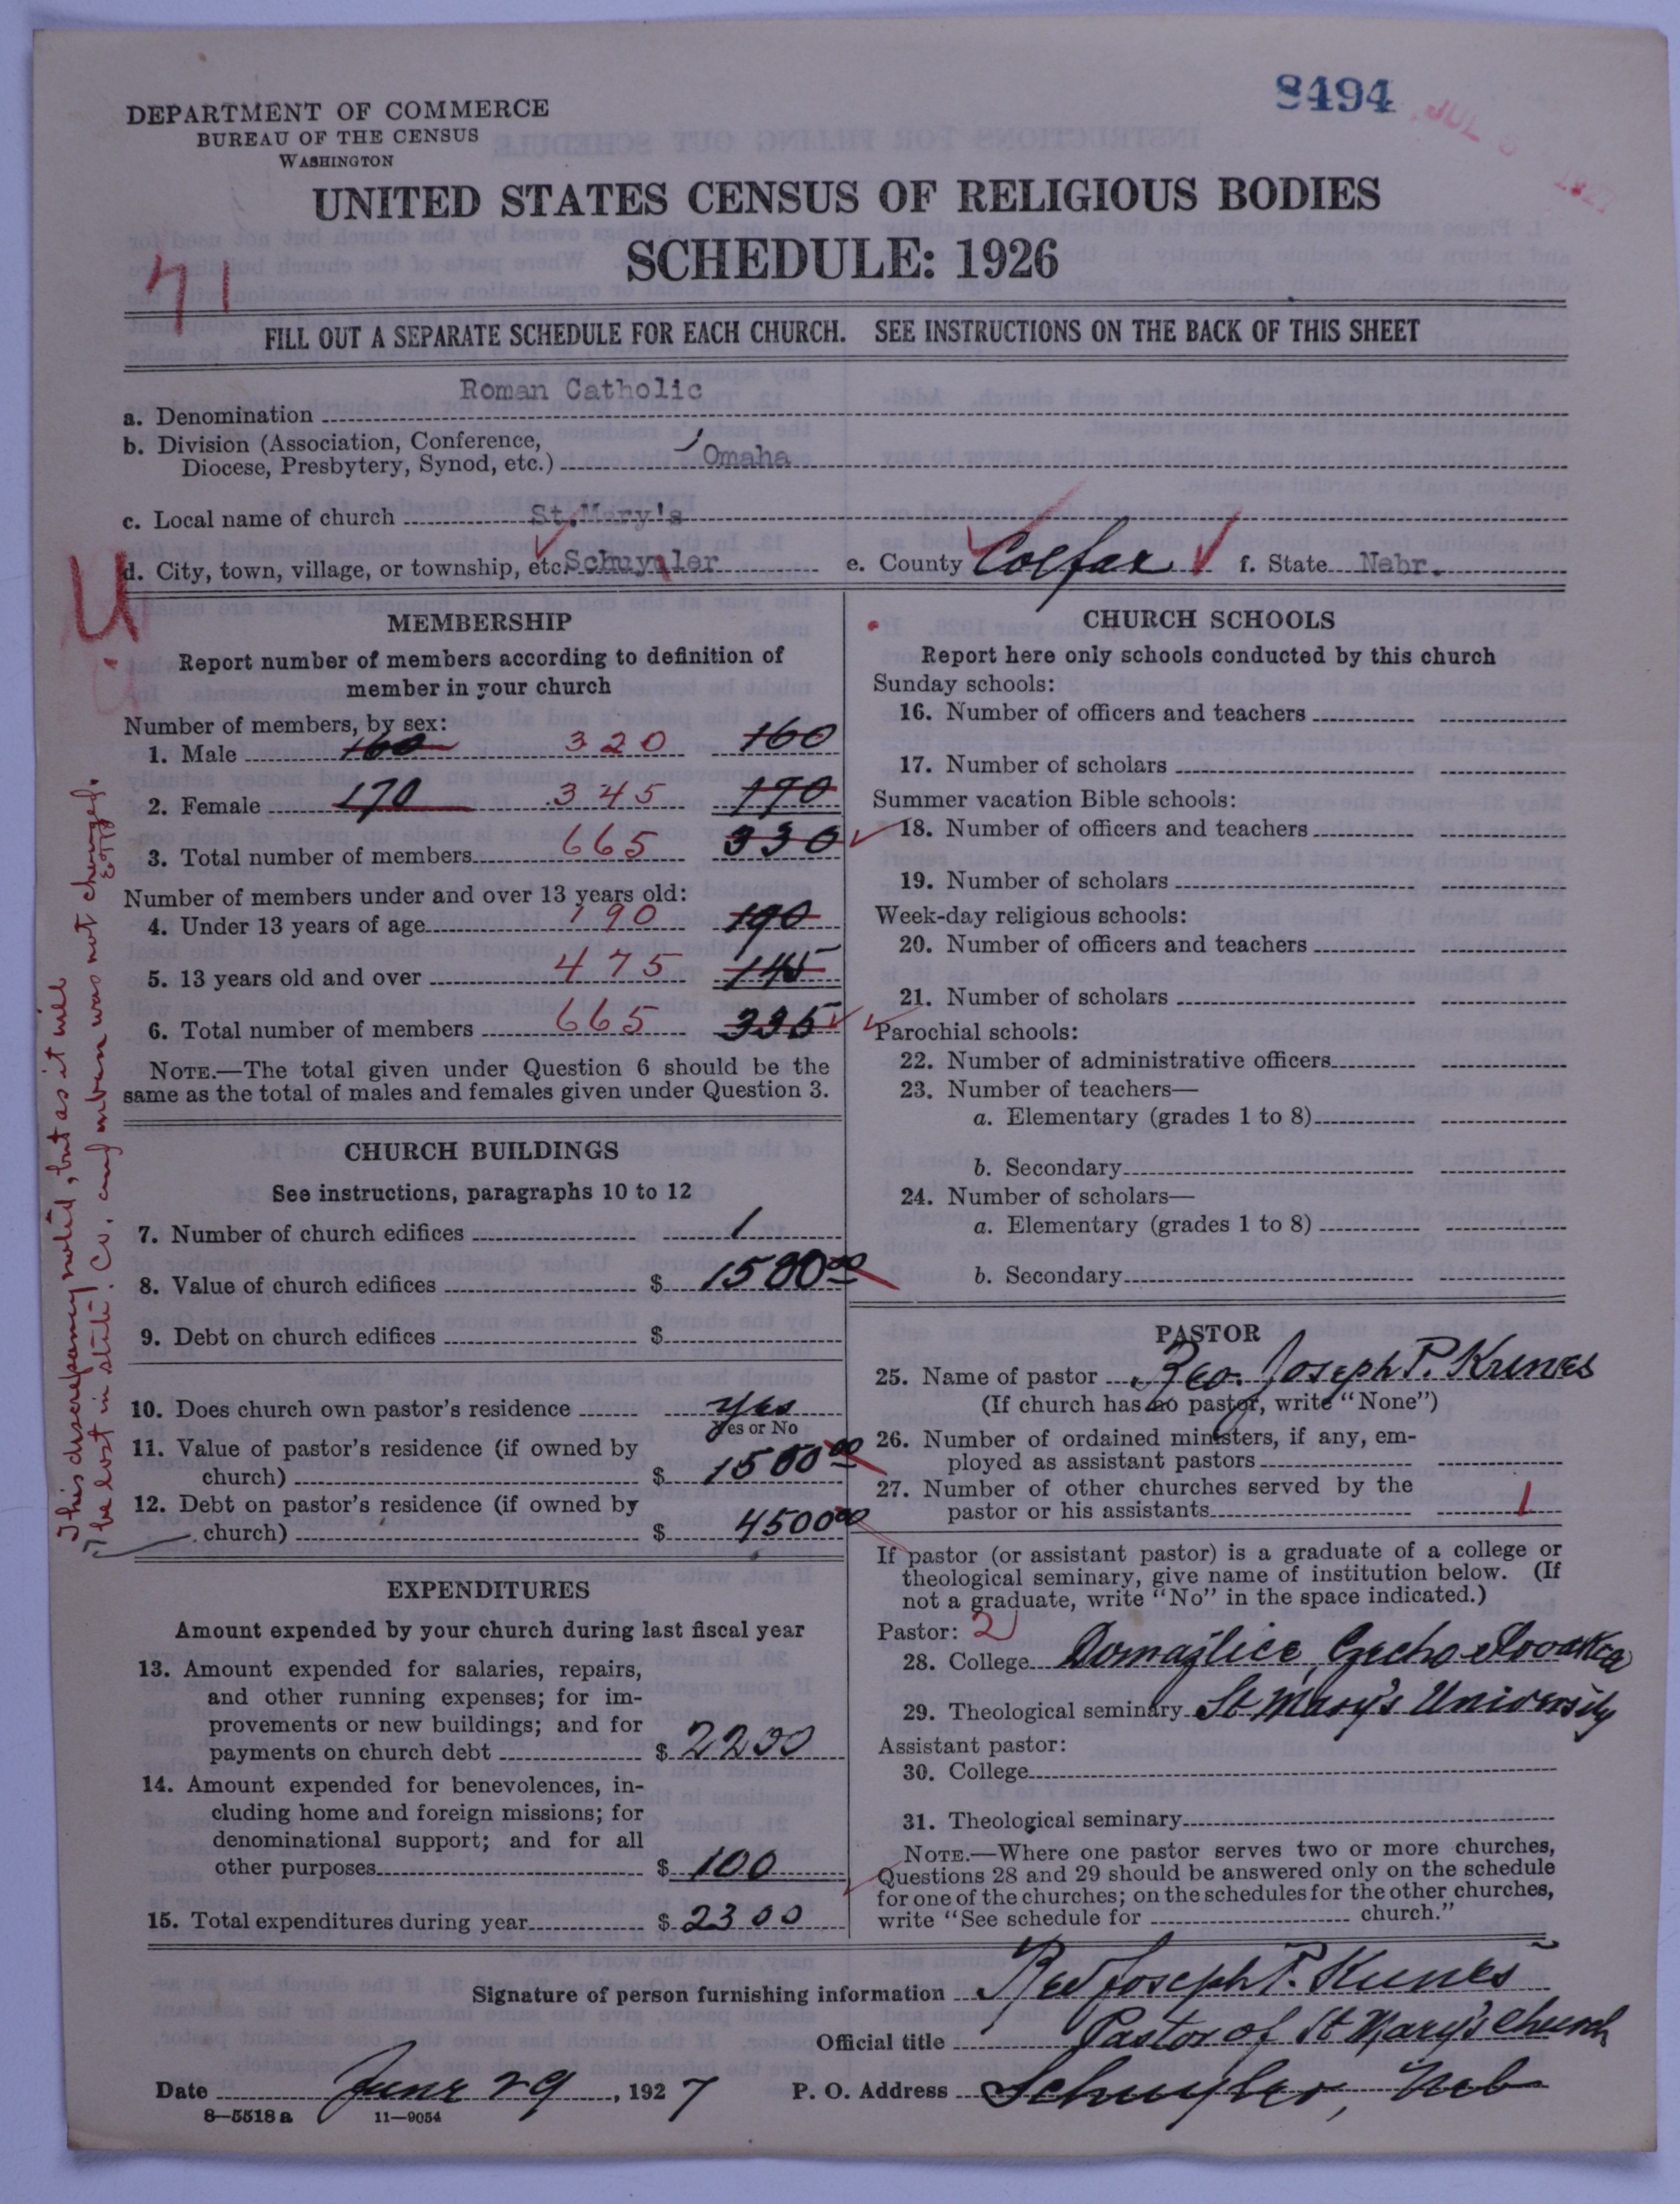 8494
JUL 1927
DEPARTMENT OF COMMERCE
BUREAU OF THE CENSUS
WASHINGTON
UNITED STATES CENSUS OF RELIGIOUS BODIES
SCHEDULE: 1926
71
FILL OUT A SEPARATE SCHEDULE FOR EACH CHURCH. SEE INSTRUCTIONS ON THE BACK OF THIS SHEET
a. Denomination Roman Catholic
b. Division (Association, Conference,
Diocese, Presbytery, Synod, etc.) Omaha
c. Local name of church St.Mary's
d. City, town, village, or township, etc. Schuyler e. County Colfax f. State Nebr.
MEMBERSHIP
Report number of members according to definition of
member in your church
Number of members, by sex:
1. Male 160 320 160
2. Female 170 345 170
3. Total number of members 665 330
Number of members under and over 13 years old:
4. Under 13 years of age 190 190
5. 13 years old and over 475 145
6. Total number of members 665 335
NOTE.—The total given under Question 6 should be the
same as the total of males and females given under Question 3.
CHURCH BUILDINGS
See instructions, paragraphs 10 to 12
7. Number of church edifices 1
8. Value of church edifices $ 1500 00
9. Debt on church edifices $
10. Does church own pastor's residence Yes
Yes or No
11. Value of pastor's residence (if owned by
church) $ 1500 00
12. Debt on pastor's residence (if owned by
church) $ 4500 00
EXPENDITURES
Amount expended by your church during last fiscal year
13. Amount expended for salaries, repairs,
and other running expenses; for im-
provements or new buildings; and for
payments on church debt $ 2200
14. Amount expended for benevolences, in-
cluding home and foreign missions; for
denominational support; and for all
other purposes $ 100
15. Total expenditures during year $ 2300
This discrepancy noted, but as it will
be lost in state. Co. and number was not changed.
CHURCH SCHOOLS
Report here only schools conducted by this church
Sunday schools:
16. Number of officers and teachers
17. Number of scholars
Summer vacation Bible schools:
18. Number of officers and teachers
19. Number of scholars
Week-day religious schools:
20. Number of officers and teachers
21. Number of scholars
Parochial schools:
22. Number of administrative officers
23. Number of teachers—
a. Elementary (grades 1 to 8)
b. Secondary
24. Number of scholars—
a. Elementary (grades 1 to 8)
b. Secondary
PASTOR
25. Name of pastor Rev. Joseph P. Kunes
(If church has no pastor, write "None")
26. Number of ordained ministers, if any, em-
ployed as assistant pastors
27. Number of other churches served by the
pastor or his assistants 1
If pastor (or assistant pastor) is a graduate of a college or
theological seminary, give name of institution below. (If
not a graduate, write "No" in the space indicated.)
Pastor: 2
28. College Domažlice, Czechoslovakia
29. Theological seminary St Mary's University
Assistant pastor:
30. College
31. Theological seminary
NOTE.—Where one pastor serves two or more churches,
Questions 28 and 29 should be answered only on the schedule
for one of the churches; on the schedules for the other churches,
write "See schedule for church."
Signature of person furnishing information Rev Joseph P. Kunes
Official title Pastor of St Mary's Church
Date June 29, 1927 P. O. Address Schuyler, Neb
8—5518 a 11—9054